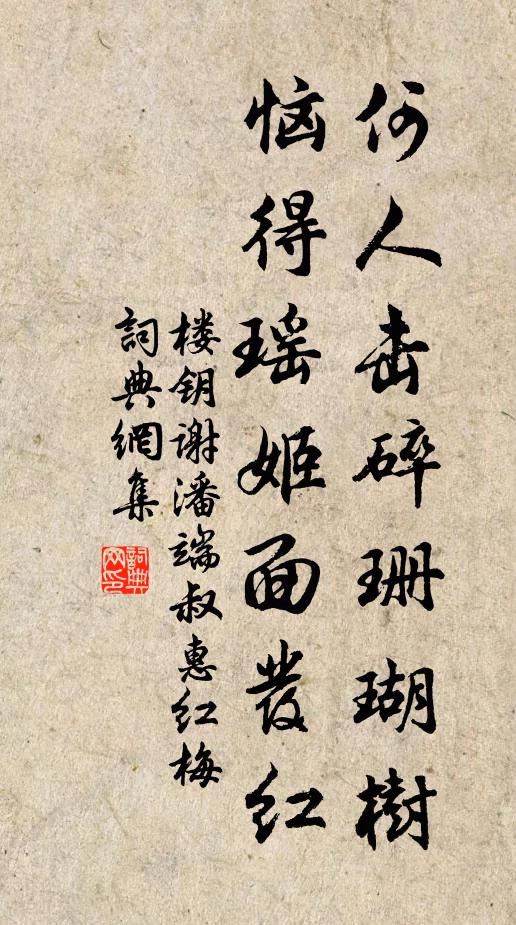 何人击碎珊瑚樹
恼得瑶姬面發红
楼钥谢潘端叔惠红梅
詞典網集
詞典网印